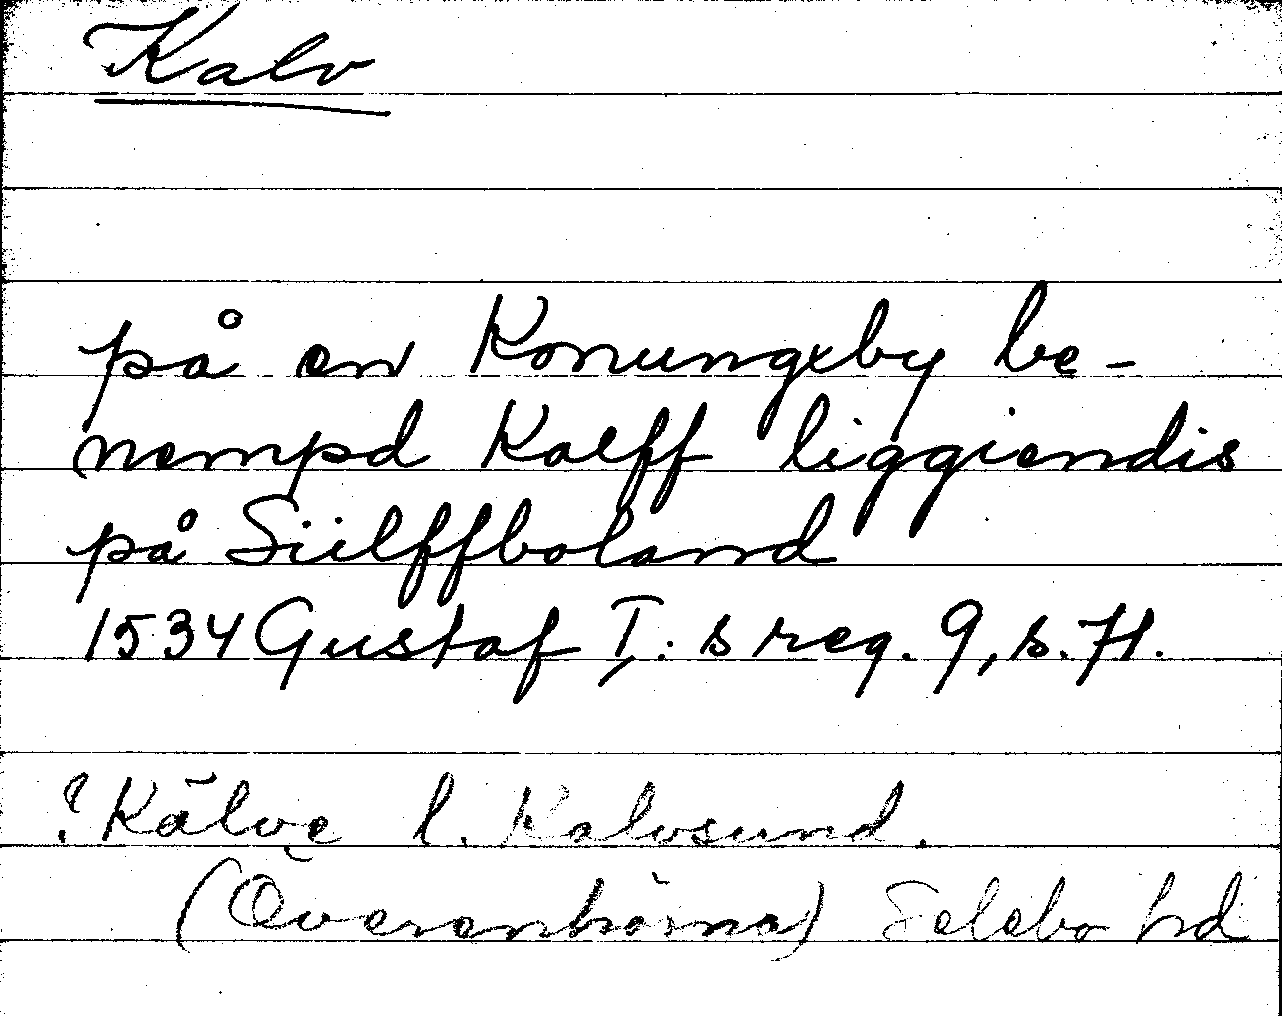 Kalv
på en Konungxby be-
nempd Kalff liggiendis
på Siilffboland
1534 Gustaf I: s reg. 9, s. 71.
? Kälve l. Kalvsund.
(Överenhörna) Selebo hd